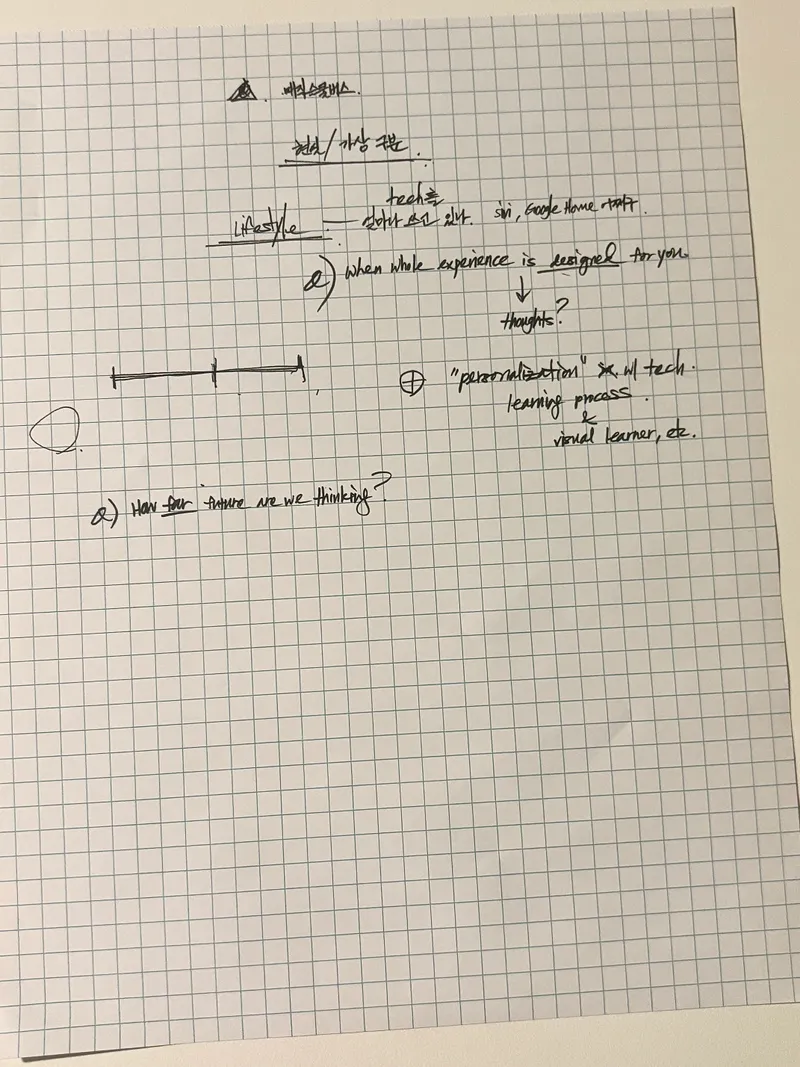 매직스쿨버스.
현실/가상 구분.
tech를
Lifestyle — 얼마나 쓰고 있나. siri, Google Home
Q) When whole experience is designed for you.
thoughts?
⊕ "personalization" w/ tech.
learning process.
&
visual learner, etc.
Q) How far future are we thinking?